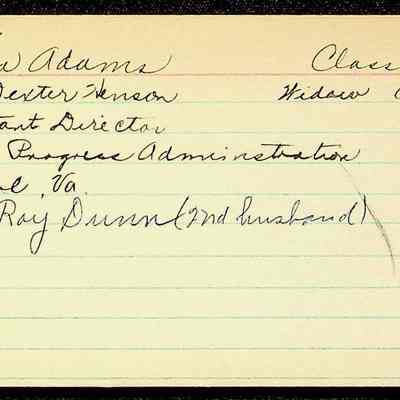 a Adams Class
Dexter Henson Widow
tant Director
Progress Administration
Va.
Roy Dunn (2nd husband)